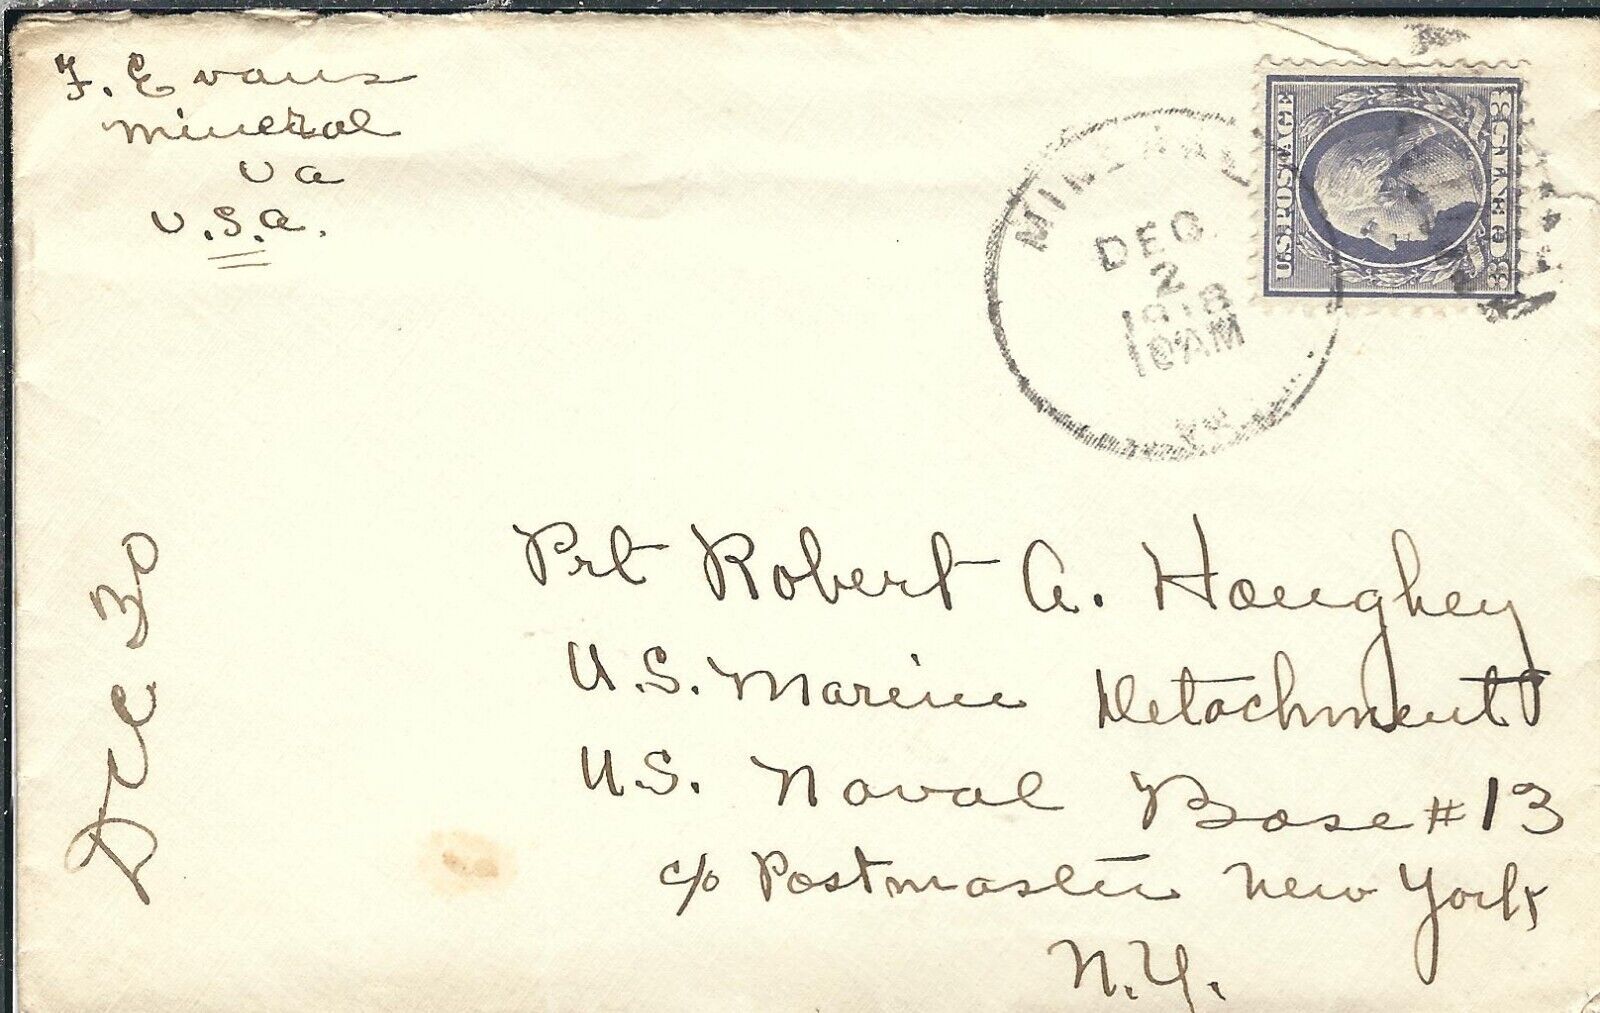 F. Evans
Mineral
Va
U.S.A.
MINERAL
DEC
2
1918
10AM
VA.
U.S. POSTAGE
3 CENTS 3
Dec 30
Pvt Robert A. Houghey
U.S. Marine Detachment
U.S. Naval Base #13
c/o Postmaster New York
N.Y.